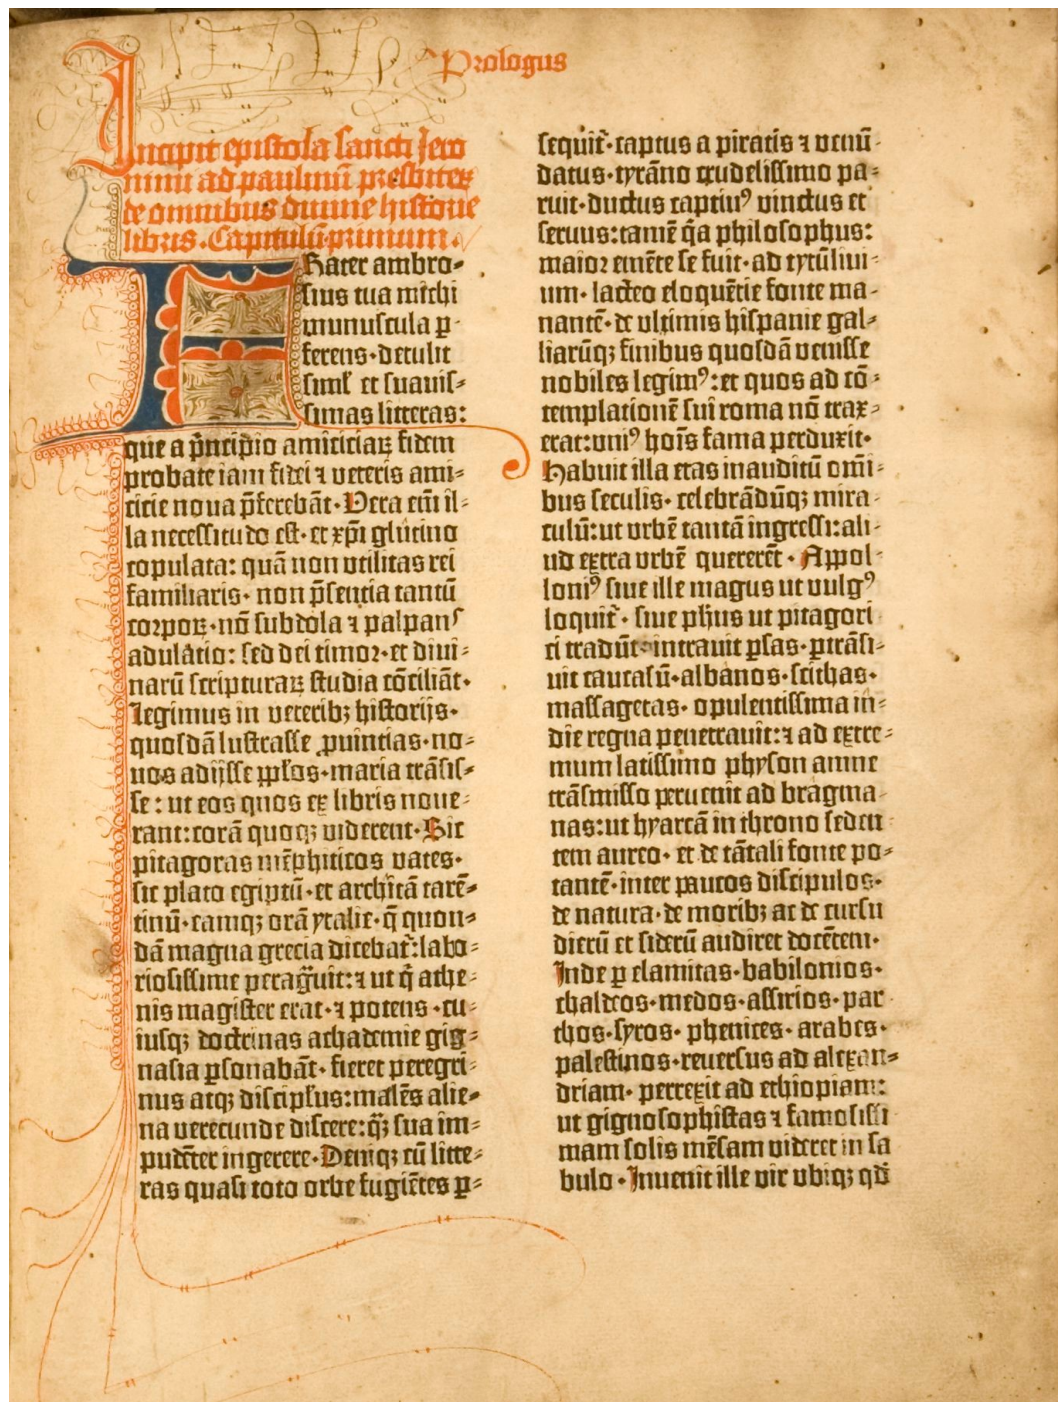 Prologus
Incipit epistola sancti Jero
nimi ad paulinū presbiteꝝ
de omnibus divine historie
libris. Capitulū primum.
FRater ambro-
sius tua michi
munuscula ꝑ-
ferens·detulit
siml' et suavis-
simas litteras:
que a p̄ncipio amiciciaꝝ fidem
probate iam fidei ⁊ veteris ami-
cicie noua p̄ferebāt· Vera em̄ il-
la necessitudo est· et xp̄i glutino
copulata: quā non utilitas rei
familiaris· non p̄sentia tantū
corpoꝝ· nō subdola ⁊ palpans
adulatio: sed dei timor· et diui-
narū scripturaꝝ studia cōciliāt·
Legimus in veteribꝫ historijs·
quosdā lustrasse ꝓuincias· no-
uos adijsse pp̄los·maria trāsis-
se: ut eos quos ex libris noue-
rant: corā quoqꝫ viderent· Sic
pitagoras mēphiticos vates·
sic plato egiptū· et architā tarē-
tinū· eamqꝫ orā ytalie· q̄ quon-
dā magna grecia dicebat᷑: labo-
riosissime peragᷓuit: ⁊ ut q̇ athe-
nis magister erat· ⁊ potens · cu-
iusqꝫ doctrinas achademie gig-
nasia ꝑsonabāt· fieret peregri-
nus atqꝫ discipl'us: malēs alie-
na verecunde discere: qᷓꝫ sua im-
pudēter ingerere· Deniqꝫ cū litte-
ras quasi toto orbe fugiētes ꝑ-
sequit᷑· captus a piratis ⁊ venū-
datus· tyrāno crudelissimo pa-
ruit· ductus captiuꝰ vinctus et
seruus: tamē q̇a philosophus:
maior emēte se fuit· ad tytūliui-
um· lacteo eloquētie fonte ma-
nantē· de ultimis hispanie gal-
liarūqꝫ finibus quosdā venisse
nobiles legimꝰ: et quos ad cō-
templationē sui roma nō trax-
erat: uniꝰ hoīs fama perduxit·
Habuit illa etas inauditū omī-
bus seculis· celebrādūqꝫ mira-
culū: ut urbē tantā ingressi: ali-
ud extra urbē quererēt· Appol-
loniꝰ siue ille magus ut vulgꝰ
loquit᷑· siue ph̄us ut pitagori
ci tradūt· intrauit ꝑsas· ꝑtrāsi-
uit caucasū· albanos· scithas·
massagetas· opulentissima in-
die regna penetrauit: ⁊ ad extre-
mum latissimo physon amne
trāsmisso peruenit ad bragma-
nas: ut hyarcā in throno seden
tem aureo· et de tātali fonte po-
tantē· inter paucos discipulos·
de natura· de moribꝫ ac de cursu
dierū et siderū audiret docētem·
Inde ꝑ elamitas· babilonios·
chaldeos· medos· assirios· par
thos· syros· phenices· arabes·
palestinos· reuersus ad alexan-
driam· perrexit ad ethiopiam:
ut gignosophistas ⁊ famosissi
mam solis mēsam videret in sa
bulo· Inuenit ille vir ubiqꝫ qd̄